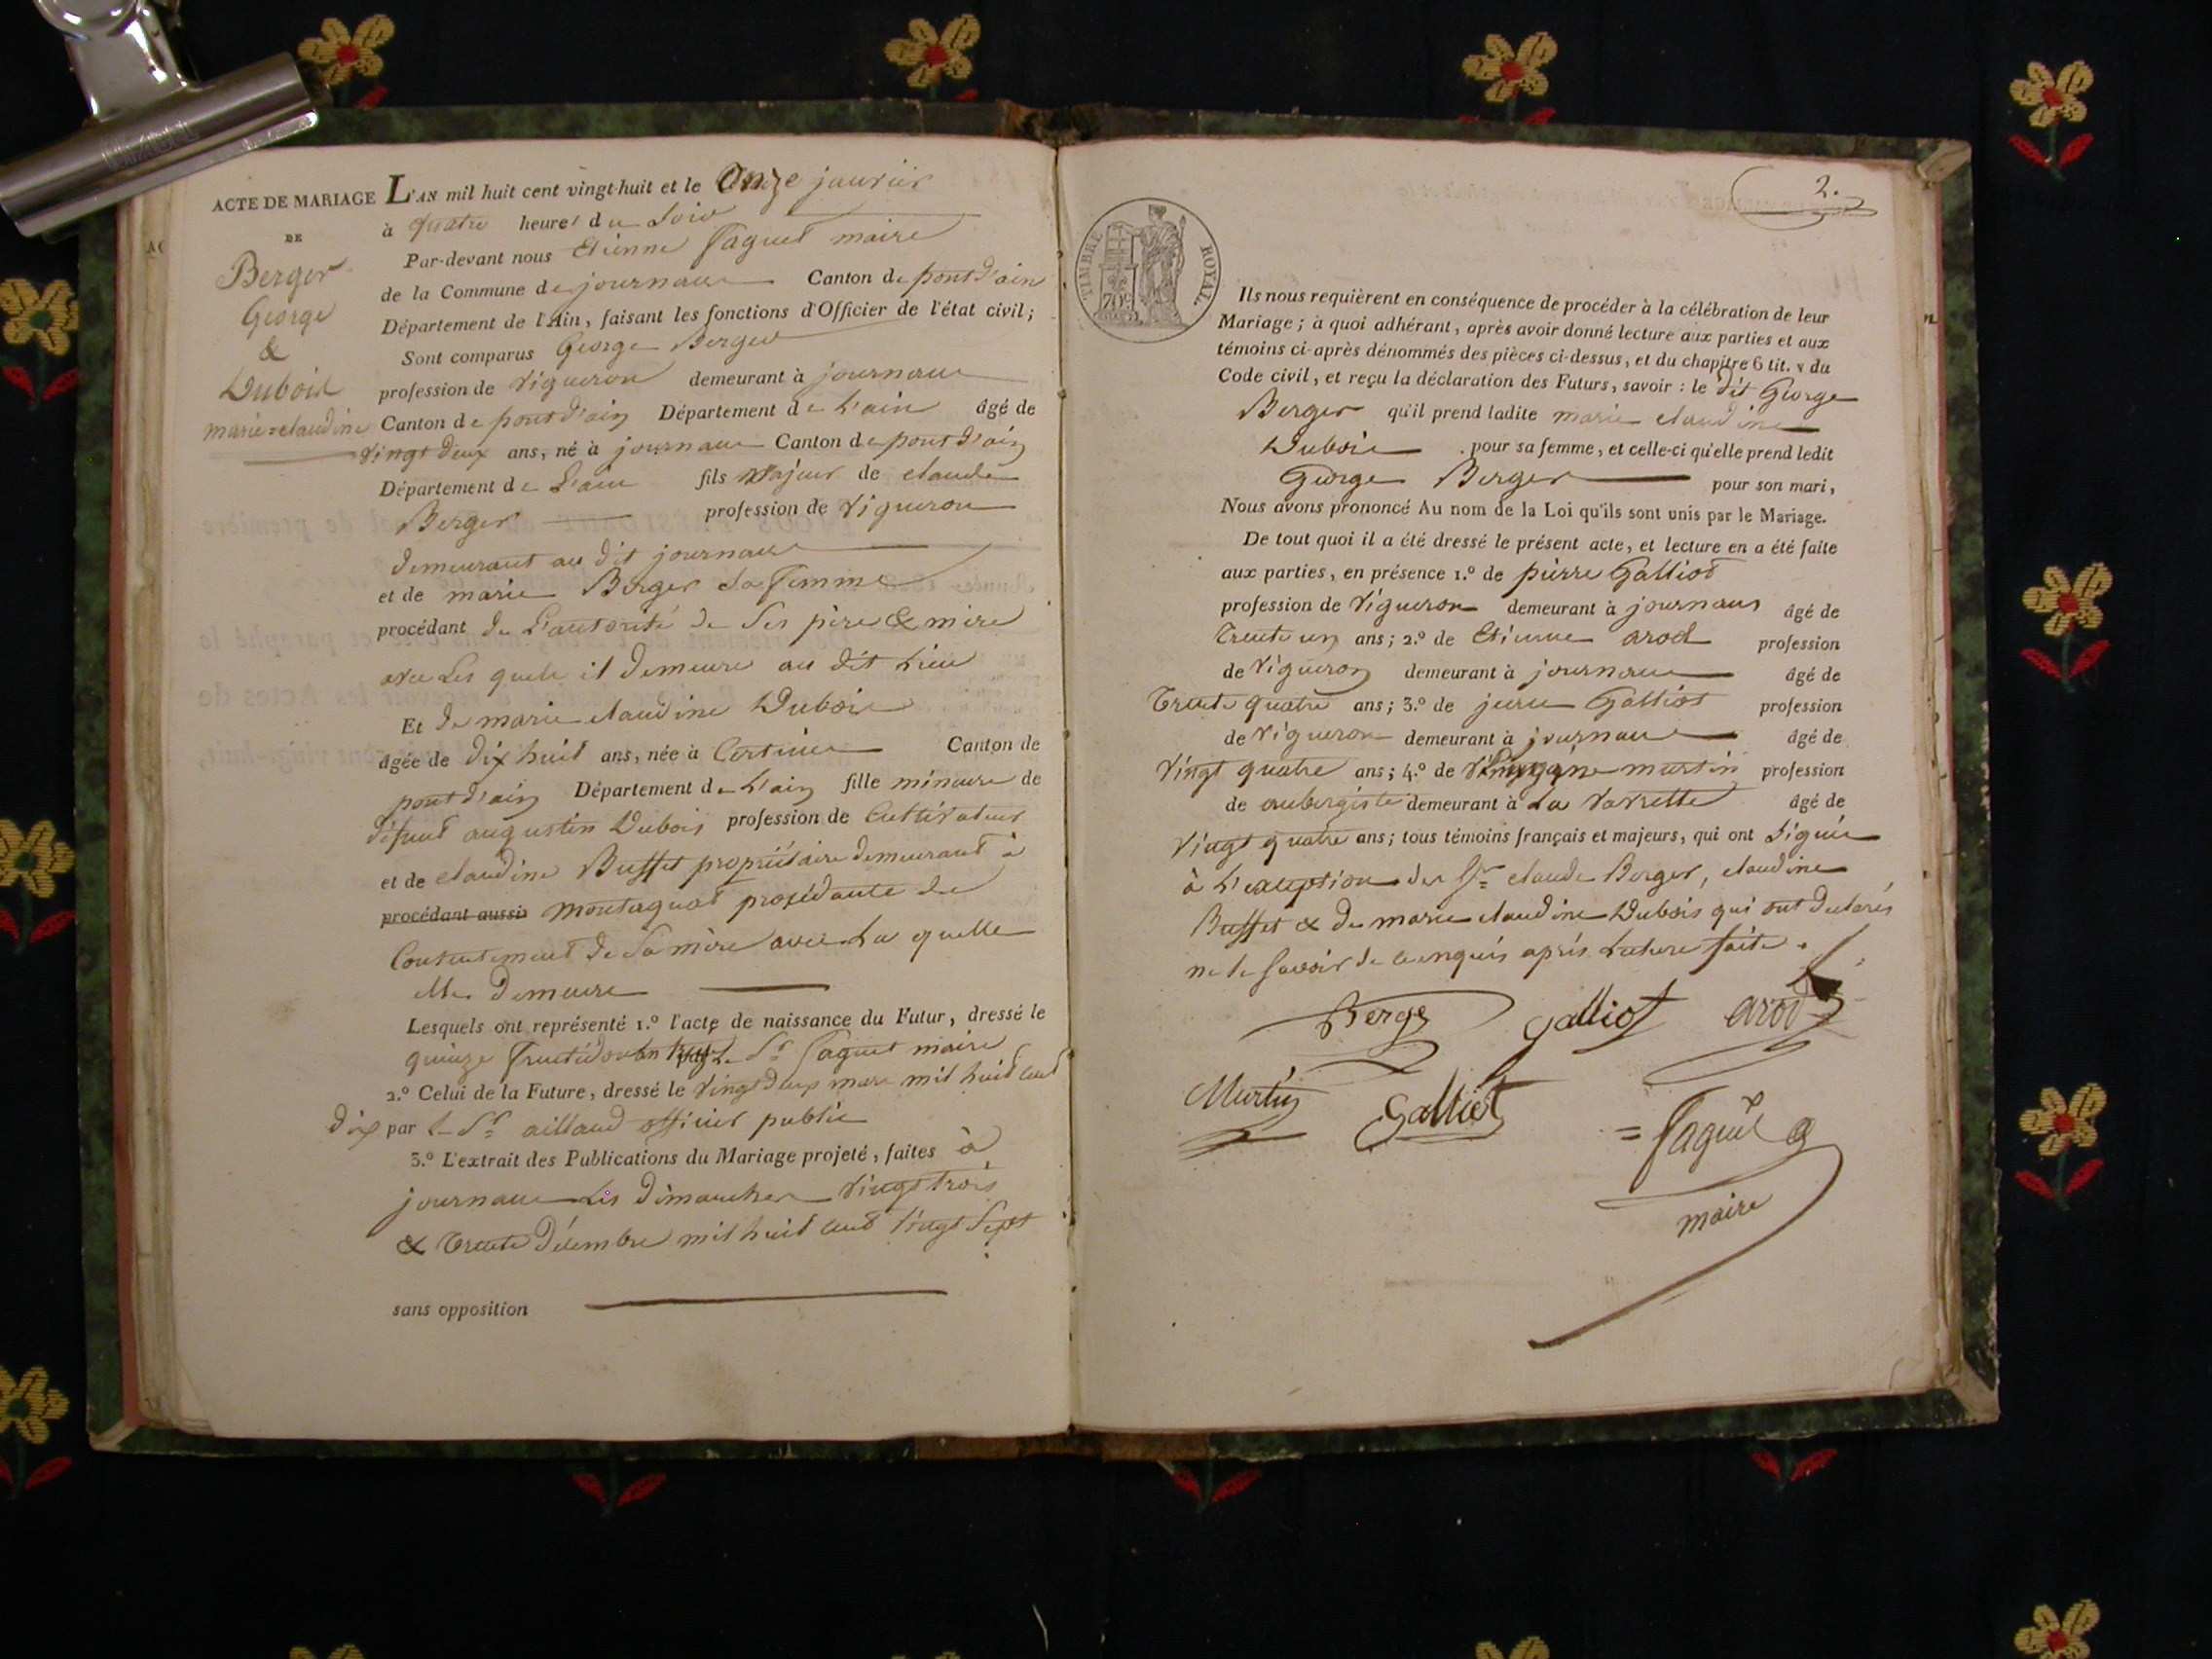 ACTE DE MARIAGE
DE
Berger
George
&
Dubois
marie=claudine
L'AN mil huit cent vingt-huit et le Onze janvier
à quatre heures du Soir
Par-devant nous Etienne Faguet maire
de la Commune de journans Canton de pont d'ain
Département de l'Ain, faisant les fonctions d'Officier de l'état civil;
Sont comparus George Berger
profession de Vigneron demeurant à journans
Canton de pont d'ain Département de L'ain âgé de
Vingt deux ans, né à journans Canton de pont d'ain
Département de L'ain fils Majeur de claude
Berger profession de Vigneron
demeurant au dit journans
et de marie Berger Sa femme
procédant de L'autorité de Ses père & mère
avec Les quels il demeure au dit Lieu
Et de marie claudine Dubois
âgée de dix huit ans, née à Certines Canton de
pont d'ain Département de L'ain fille mineure de
défunt augustin Dubois profession de Cultivateur
et de claudine Buffet propriétaire demeurant à
procédant aussi Montagnat procédante du
Contentement de Sa mère avec La quelle
elle Demeure
Lesquels ont représenté 1.º l'acte de naissance du Futur, dressé le
quinze fructidor an par Le Sr Faguet maire
2.º Celui de la Future, dressé le vingt deux mars mil huit cent
dix par Le Sr aillaud officier public
3.º L'extrait des Publications du Mariage projeté, faites à
journans Les dimanches Vingt trois
& trente décembre mil huit cent Vingt Sept
sans opposition
2.
TIMBRE ROYAL
70c
Ils nous requièrent en conséquence de procéder à la célébration de leur
Mariage; à quoi adhérant, après avoir donné lecture aux parties et aux
témoins ci-après dénommés des pièces ci-dessus, et du chapitre 6 tit. v du
Code civil, et reçu la déclaration des Futurs, savoir: le dit George
Berger qu'il prend ladite marie claudine
Dubois pour sa femme, et celle-ci qu'elle prend ledit
George Berger pour son mari,
Nous avons prononcé Au nom de la Loi qu'ils sont unis par le Mariage.
De tout quoi il a été dressé le présent acte, et lecture en a été faite
aux parties, en présence 1.º de pierre Galliot
profession de Vigneron demeurant à journans âgé de
Trente un ans; 2.º de Etienne arod profession
de Vigneron demeurant à journans âgé de
Trente quatre ans; 3.º de Galliot profession
de Vigneron demeurant à journans âgé de
Vingt quatre ans; 4.º de martin profession
de aubergiste demeurant à La Vavrette âgé de
Vingt quatre ans; tous témoins français et majeurs, qui ont Signés
à L'exception des Sr claude Berger, claudine
Buffet & de marie claudine Dubois qui ont déclarés
ne le Savoir de ce enquis après Lecture faite.
Berge
Galliot
arod
Martin
Galliot
= Faguet
maire